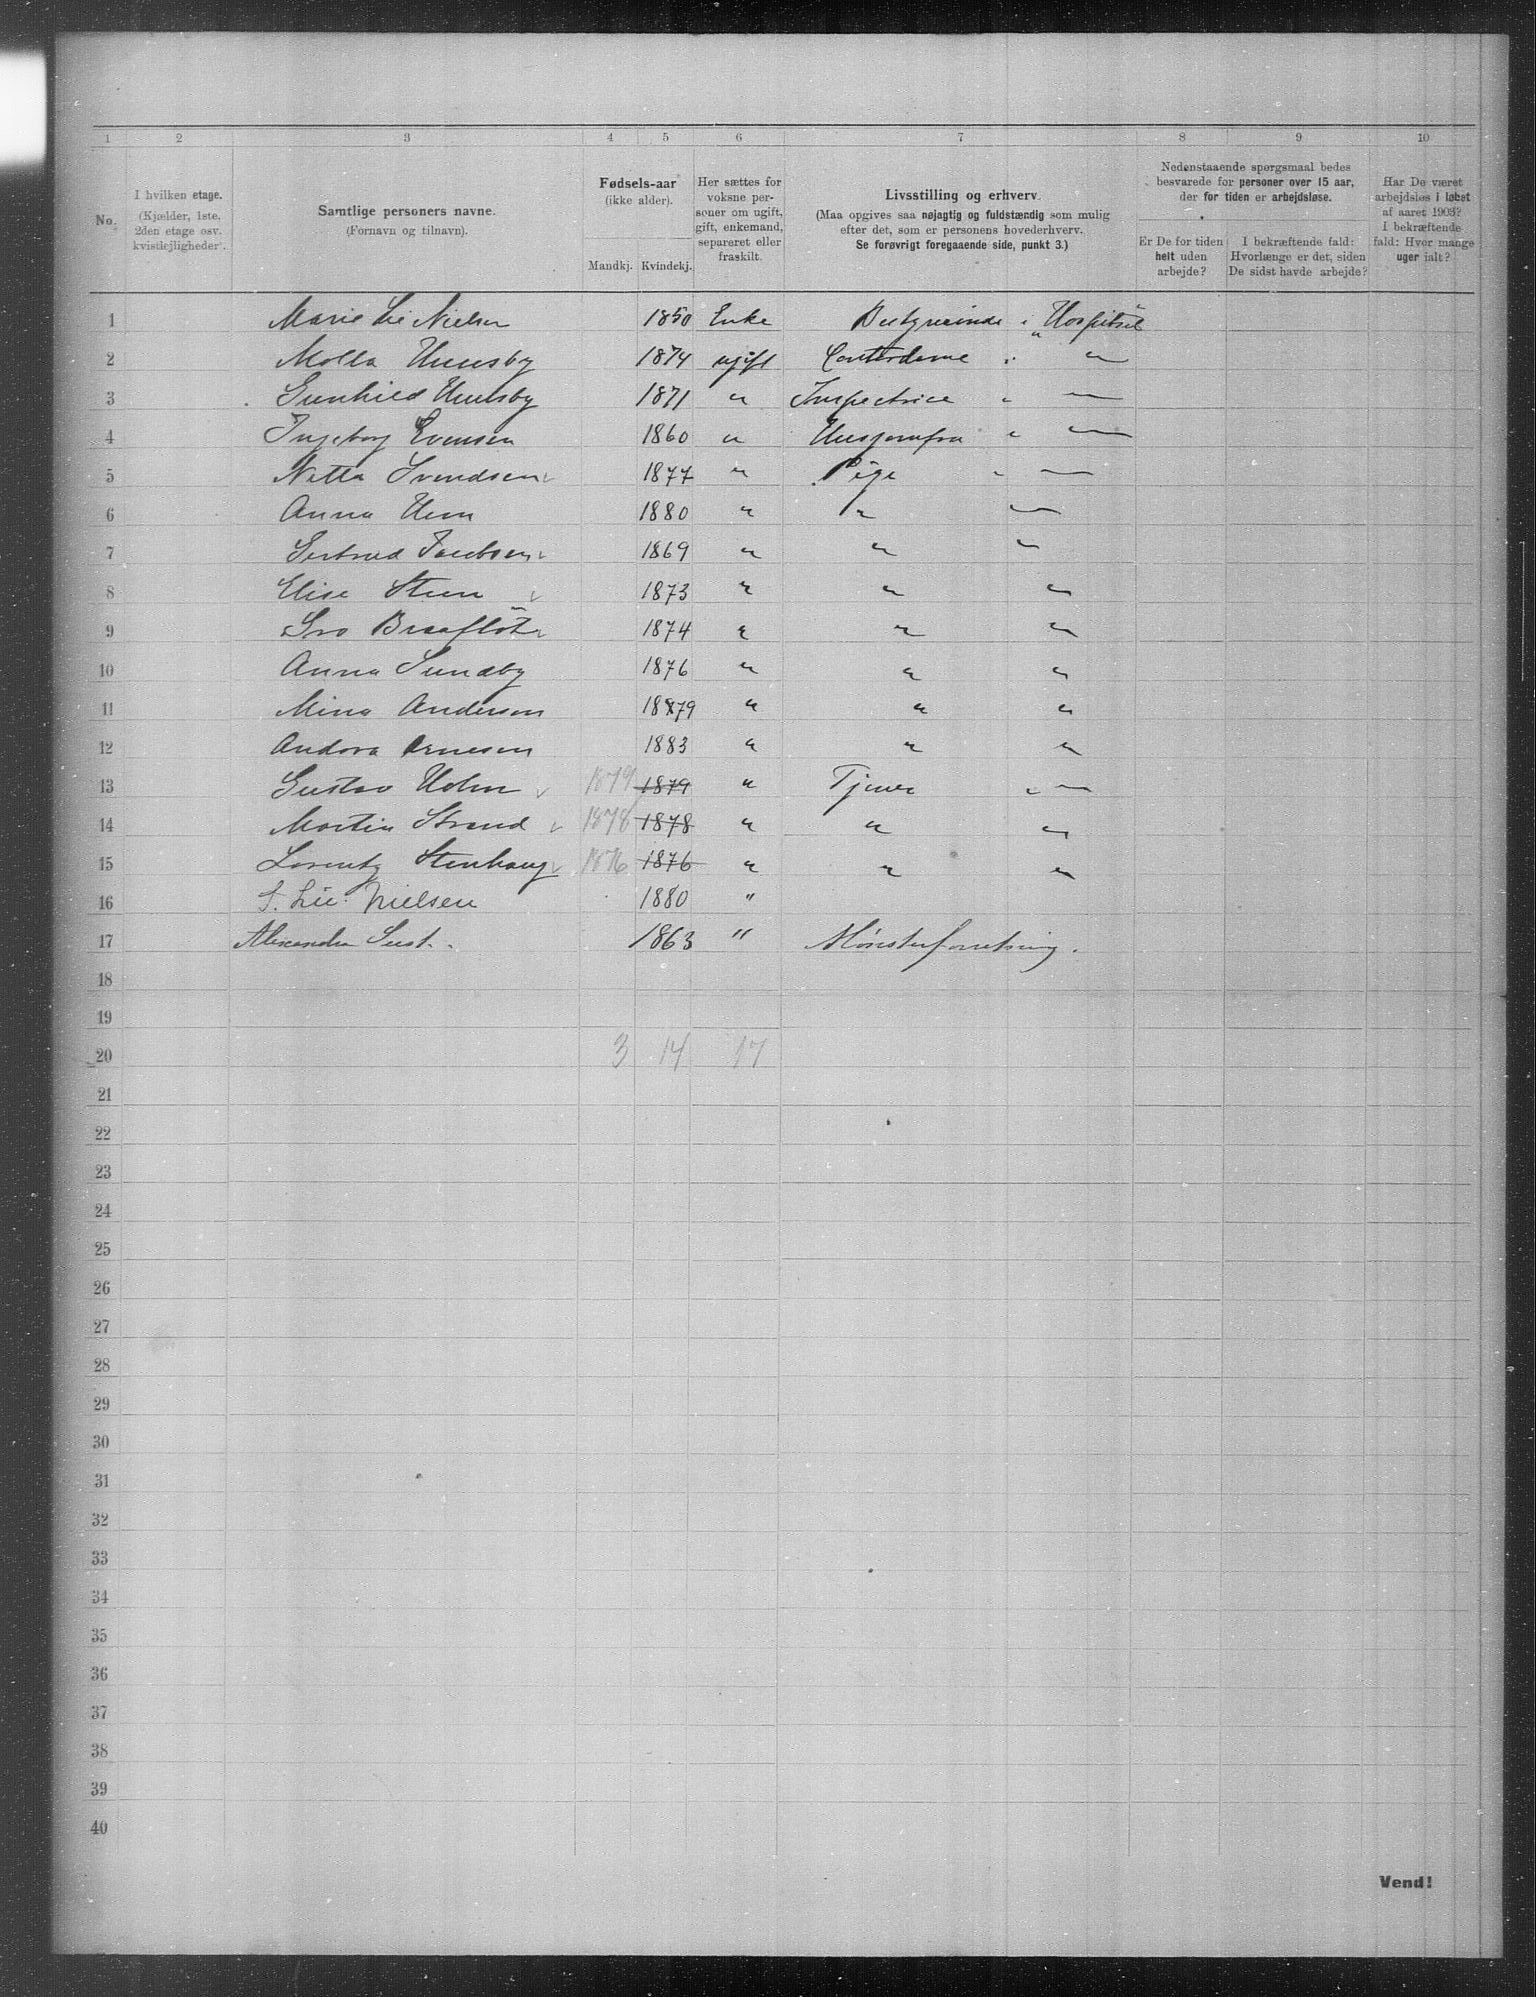 1 2 3 4 5 6 7 8 9 10
No.
I hvilken etage.
(Kjælder, 1ste,
2den etage osv.
kvistlejligheder).
Samtlige personers navne.
(Fornavn og tilnavn).
Fødsels-aar
(ikke alder).
Mandkj. Kvindekj.
Her sættes for
voksne per-
soner om ugift,
gift, enkemand,
separeret eller
fraskilt.
Livsstilling og erhverv.
(Maa opgives saa nøjagtig og fuldstændig som mulig
efter det, som er personens hovederhverv.
Se forøvrigt foregaaende side, punkt 3.)
Nedenstaaende spørgsmaal bedes
besvarede for personer over 15 aar,
der for tiden er arbejdsløse.
Er De for tiden
helt uden
arbejde?
I bekræftende fald:
Hvorlænge er det, siden
De sidst havde arbejde?
Har De været
arbejdsløs i løbet
af aaret 1903?
I bekræftende
fald: Hvor mange
uger ialt?
1 Marie Lie Nielsen 1850 Enke Bestyrerinde i Hospitset
2 Molla 1874 ugift " "
3 Gunhild 1871 " Inspectrice " "
4 Ingeborg Evensen 1860 " Husjomfru " "
5 Netta Svendsen 1877 " Pige " "
6 Anna 1880 " " "
7 Gertrud Jacobsen 1869 " " "
8 Elise Steen 1873 " " "
9 1874 " " "
10 Anna Sundby 1876 " " "
11 Mina Andersen 1879 " " "
12 Andora Arnesen 1883 " " "
13 Gustav Holm 1879 1879 " Tjener " "
14 Martin Strand 1878 1878 " " "
15 Lorentz Stenhaug 1876 1876 " " "
16 S. Lie Nielsen 1880 "
17 Alexandra 1863 " Mønsterforretning.
18
19
20 3 14 17
21
22
23
24
25
26
27
28
29
30
31
32
33
34
35
36
37
38
39
40
Vend!